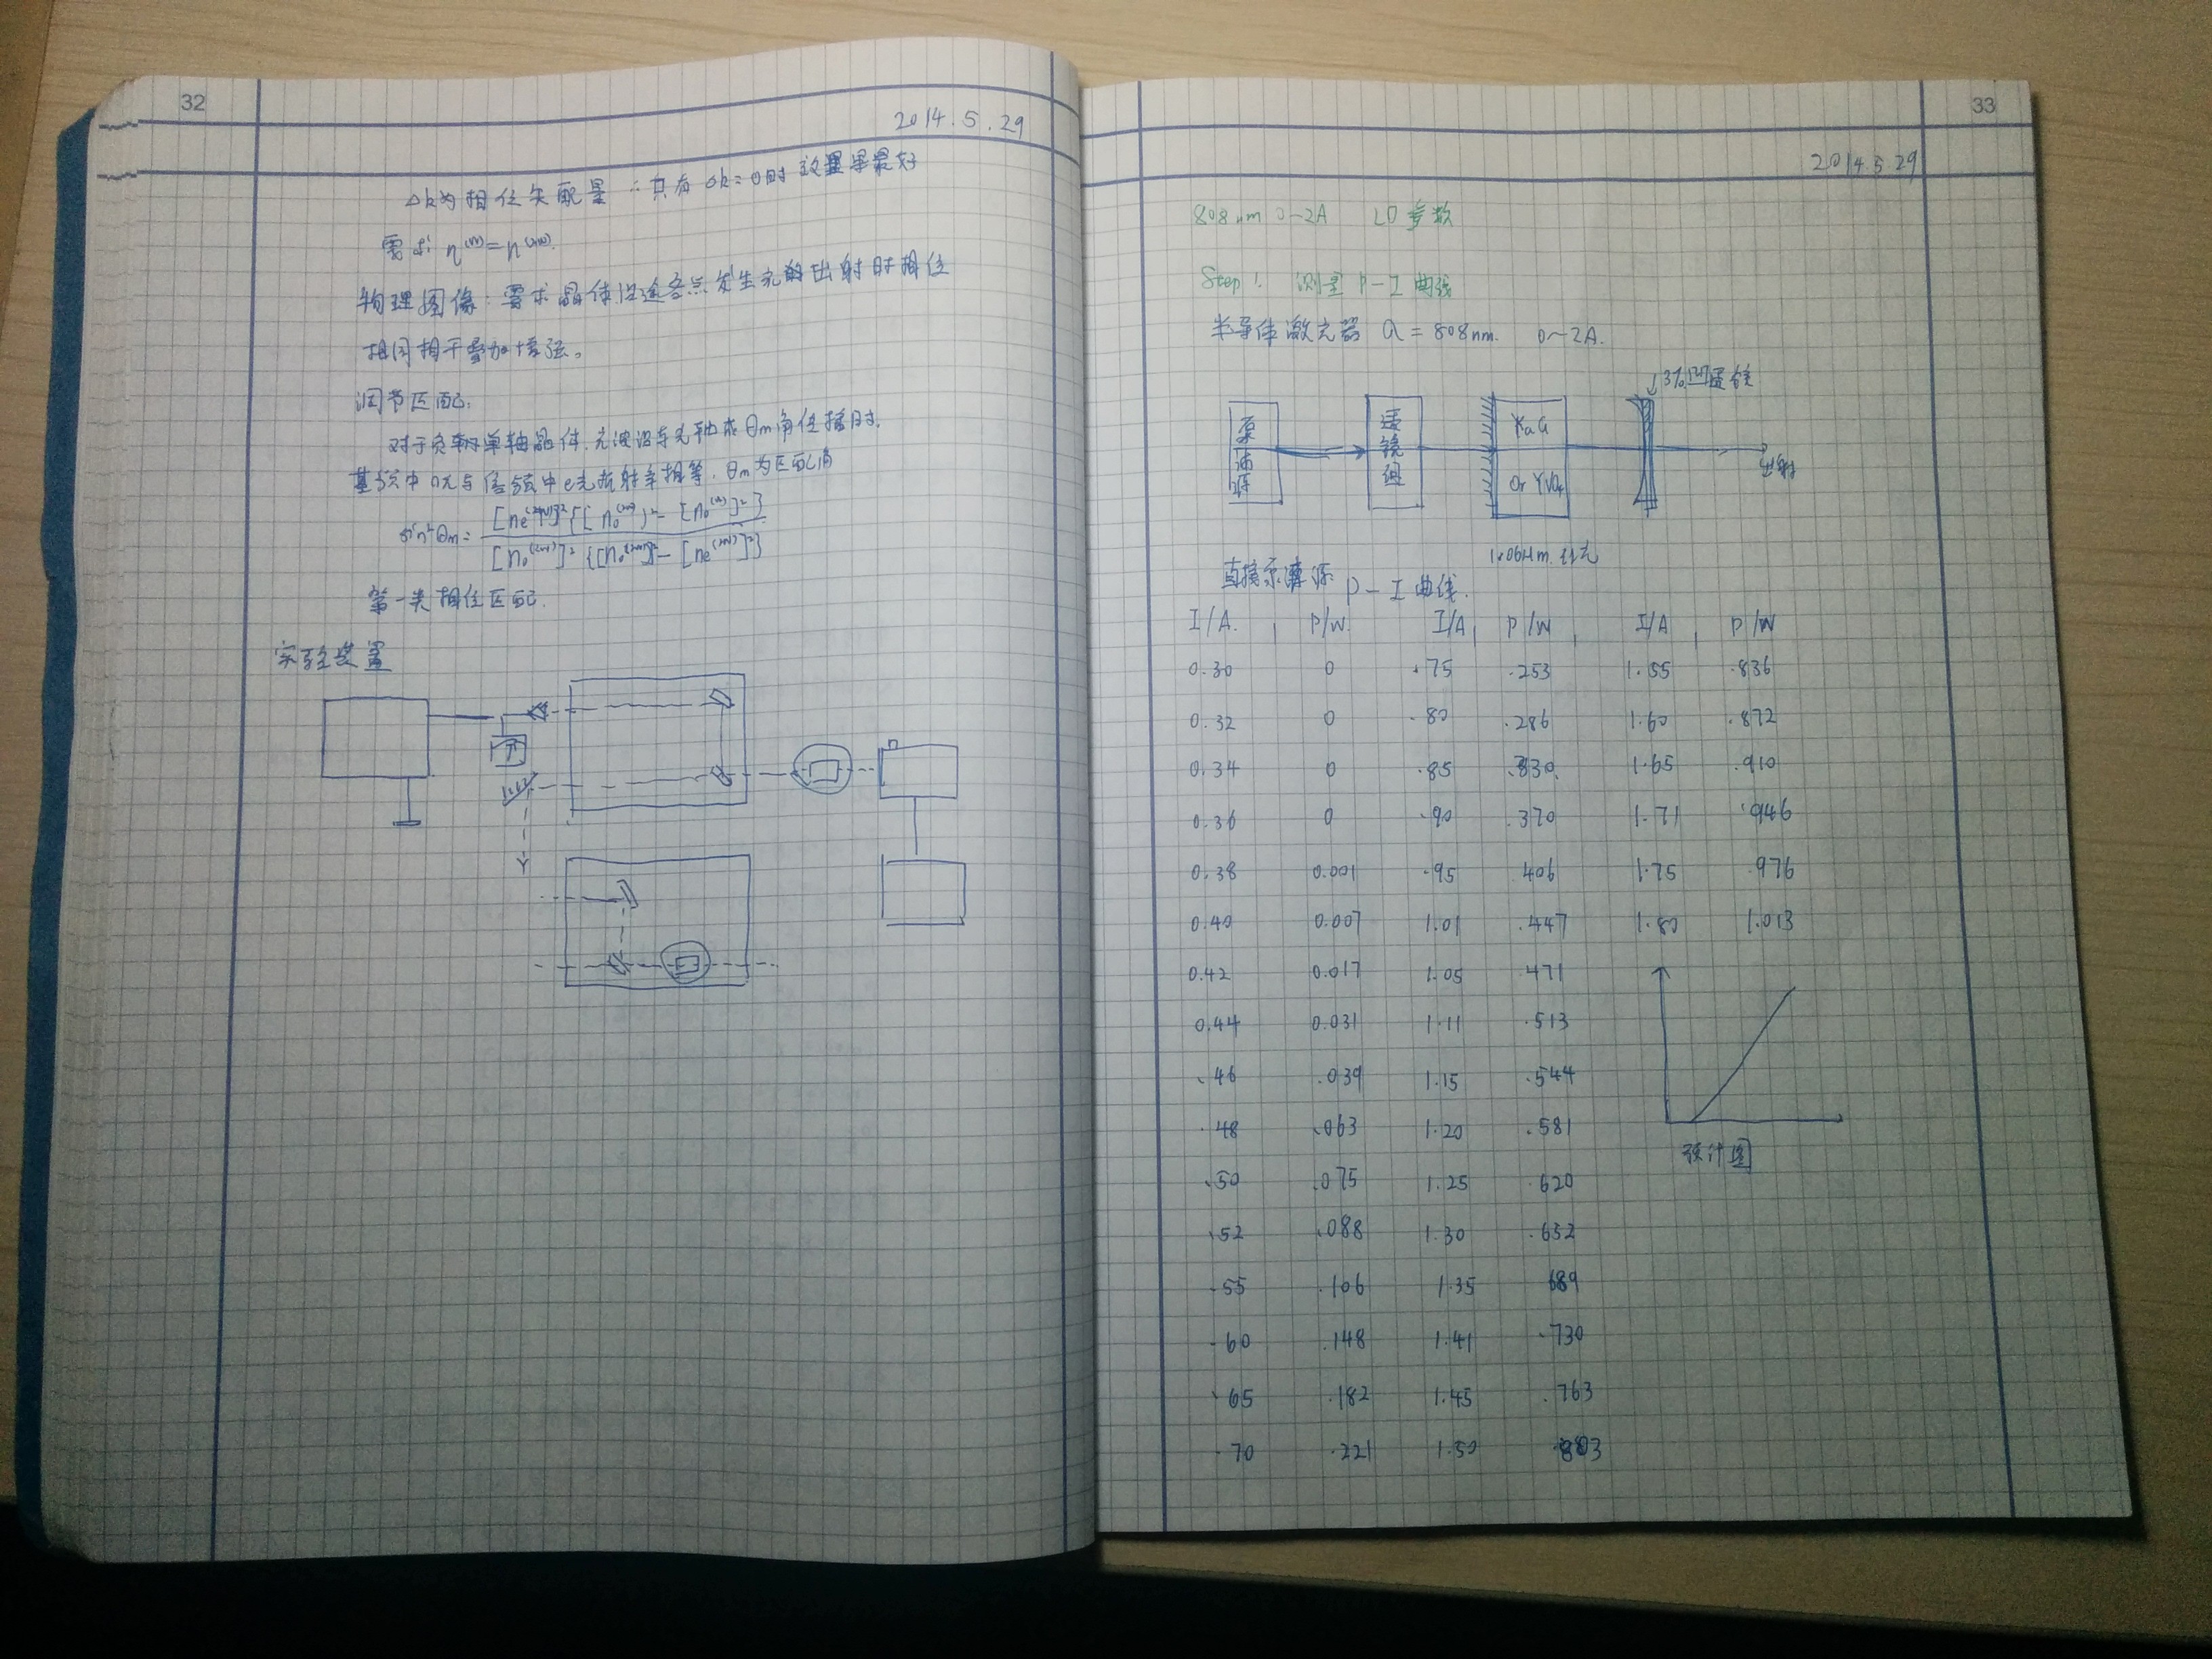 32
2014.5.29
Δk为相位失配量 ∵只有Δk=0时效果最好
需求 n⁽ʷ⁾=n⁽²ʷ⁾.
物理图像:要求晶体沿途各点发生光的出射时相位
相同相干叠加增强。
调节匹配:
对于负单轴晶体.光波沿与光轴成θm角传播时.
基频中o光与倍频中e光折射率相等. θm为匹配角
sin²θm = [ne⁽²ʷ⁾]²{[no⁽²ʷ⁾]²-[no⁽ʷ⁾]²} / [no⁽ʷ⁾]²{[no⁽²ʷ⁾]²-[ne⁽²ʷ⁾]²}
第一类相位匹配.
实验装置
33
2014.5.29
808nm 0~2A LD参数
Step 1. 测量P-I曲线
半导体激光器 λ=808nm. 0~2A.
3%凹面镜
泵浦源
透镜组
YaG
Or YVO₄
出射
1.06μm.红光
直接泵浦源
P-I曲线.
I/A. P/W. I/A P/W I/A P/W
0.30 0 .75 .253 1.55 .836
0.32 0 .80 .286 1.60 .872
0.34 0 .85 .330. 1.65 .910
0.36 0 .90 .370 1.71 .946
0.38 0.001 .95 .406 1.75 .976
0.40 0.007 1.01 .447 1.80 1.013
0.42 0.017 1.05 .471
0.44 0.031 1.11 .513
.46 .039 1.15 .544
.48 .063 1.20 .581
.50 .075 1.25 .620
.52 .088 1.30 .652
.55 .106 1.35 689
.60 .148 1.41 .730
.65 .182 1.45 .763
.70 .221 1.50 .803
预计图